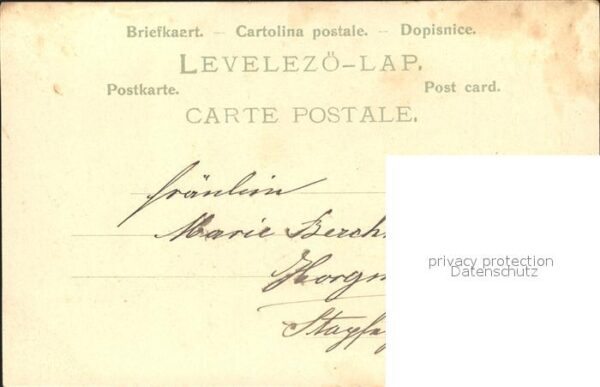 Briefkaart. — Cartolina postale. — Dopisnice.
LEVELEZŐ-LAP.
Postkarte. Post card.
CARTE POSTALE.
Fräulein
Marie Berch
Horg
Stapf
privacy protection
Datenschutz